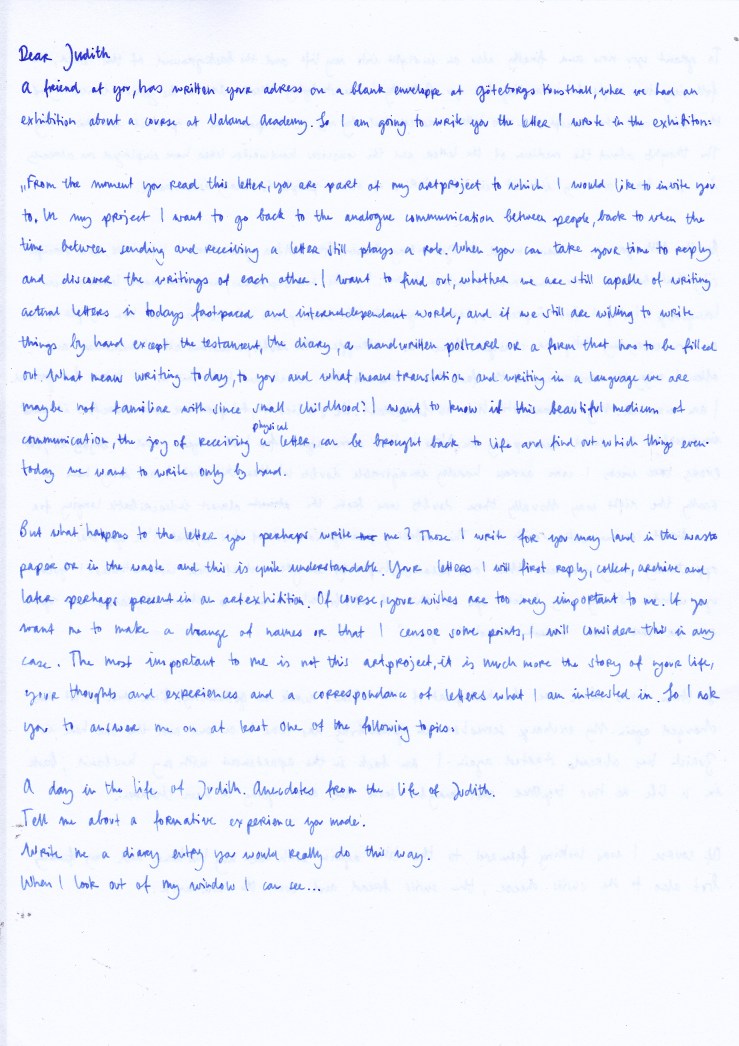 Dear Judith
A friend at you, has written your adress on a blank enveloppe at Göteborgs Konsthall, where we had an
exhibition about a course at Valand Academy. So I am going to write you the letter I wrote in the exhibition:
„From the moment you read this letter, you are part of my artproject to which I would like to invite you
to. In my project I want to go back to the analogue communication between people, back to when the
time between sending and receiving a letter still plays a role. When you can take your time to reply
and discover the writings of each other. I want to find out, whether we are still capable of writing
actual letters in todays fastpaced and internetdependant world, and if we still are willing to write
things by hand except the testament, the diary, a handwritten postcard or a form that has to be filled
out. What means writing today, to you and what means translation and writing in a language we are
maybe not familiar with since small childhood? I want to know if this beautiful medium of
communication, the joy of receiving a physical letter, can be brought back to life and find out which things even
today we want to write only by hand.
But what happens to the letter you perhaps write me? Those I write for you may land in the waste
paper or in the waste and this is quite understandable. Your letters I will first reply, collect, archive and
later perhaps present in an artexhibition. Of course, your wishes are too very important to me. If you
want me to make a change of names or that I censor some points, I will consider this in any
case. The most important to me is not this artproject, it is much more the story of your life,
your thoughts and experiences and a correspondance of letters what I am interested in. So I ask
you to answer me on at least one of the following topics:
A day in the life of Judith. Anecdotes from the life of Judith.
Tell me about a formative experience you made.
Write me a diary entry you would really do this way.
When I look out of my window I can see...